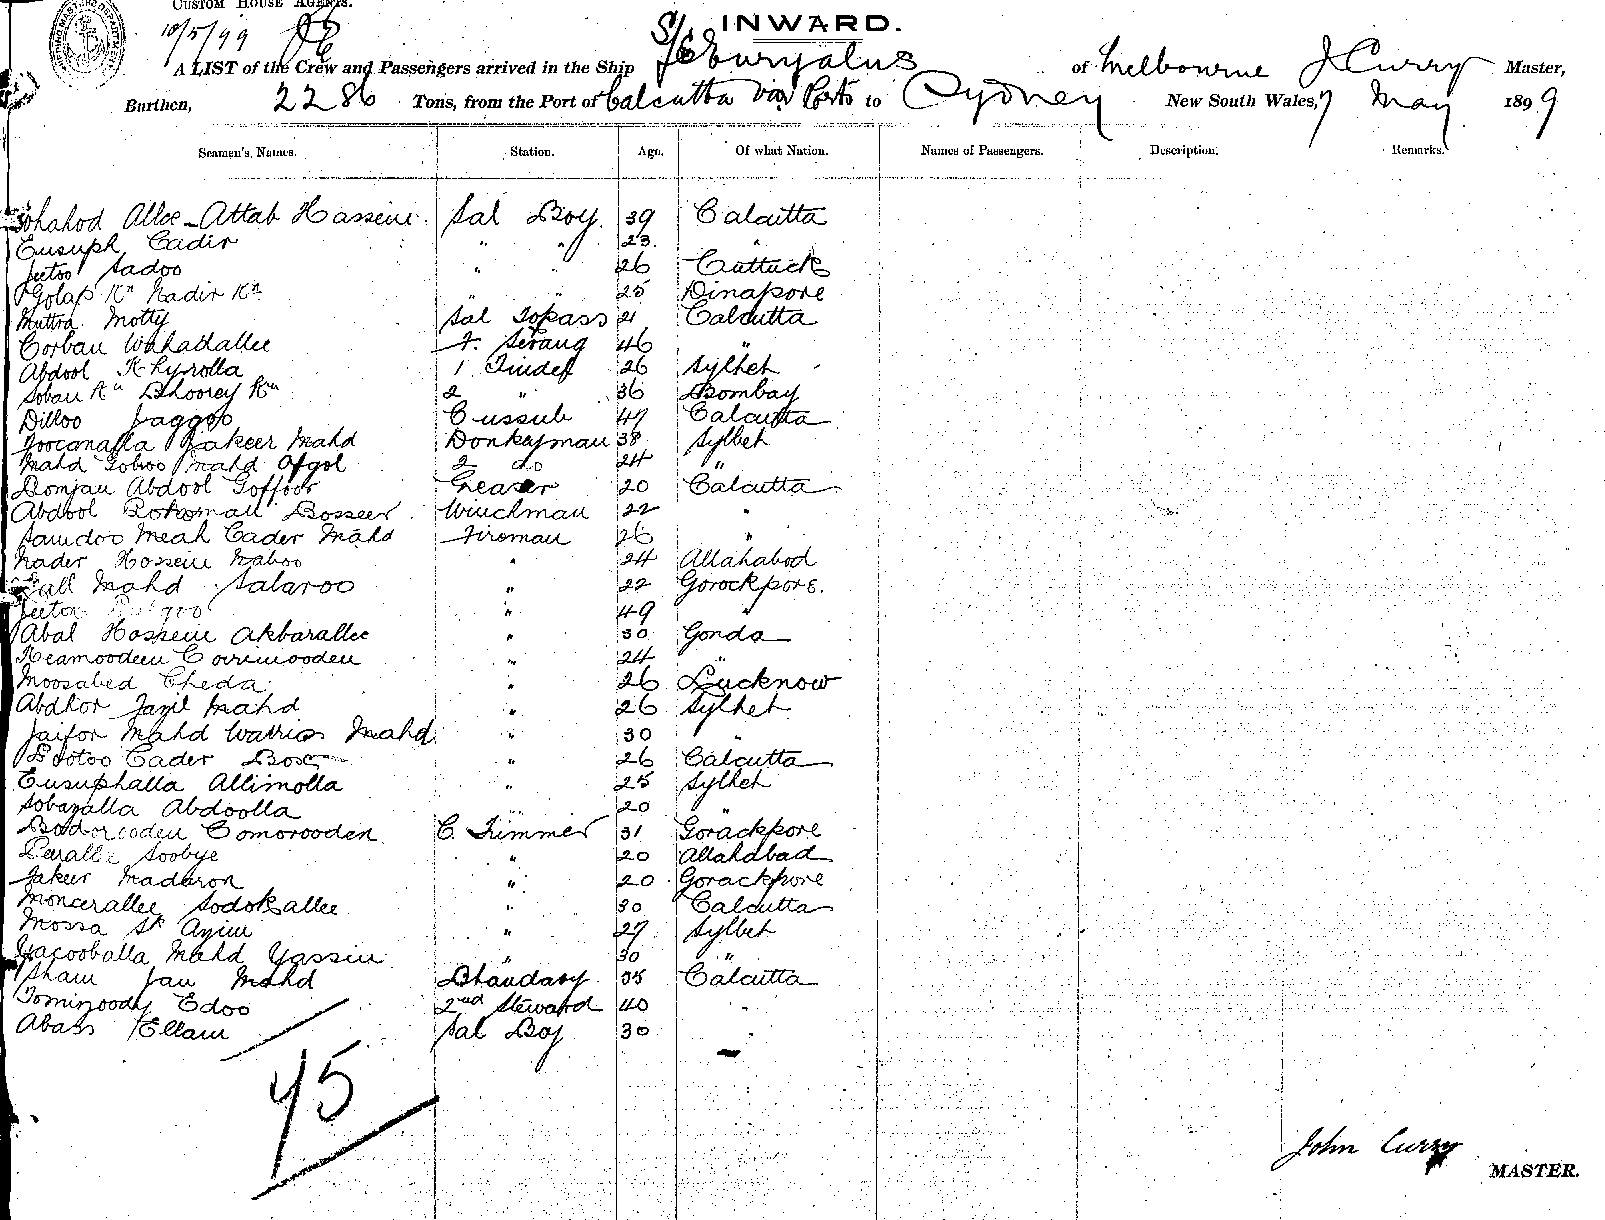 CUSTOM HOUSE AGENTS.
10/5/99
INWARD.
A LIST of the Crew and Passengers arrived in the Ship S/S Euryalus of Melbourne J Curry Master,
Burthen, 2286 Tons, from the Port of Calcutta via Ports to Sydney New South Wales, 7 May 1899
Seamen's Names. Station. Age. Of what Nation. Names of Passengers. Description. Remarks.
Allee Attab Hossein Sal Boy 39 Calcutta
Eusuph Cadir " " 23 "
Jeetoo Sadoo " " 26 Cuttack
Golap Kn Nadir Kn " " 25 Dinapore
Muttra Motty Sal Topass 21 Calcutta
Corban Wahadallee F. Serang 46 "
Abdool Khyrolla 1 Tindel 26 Sylhet
Soban Kn Bhoorey Kn 2 " 36 Bombay
Dilloo Jaggoo Cussub 47 Calcutta
Fakeer Mahd Donkeyman 38 Sylhet
Mahd Goboo Mahd Ofgol 2 do 24 "
Domjan Abdool Goffoor Greaser 20 Calcutta
Abdool Rohoman Bosseer Winchman 22 "
Samdoo Meah Cader Mahd Fireman 26 "
Nader Hossein Naboo " 24 Allahabod
Mahd Salaroo " 22 Gorockpore.
Jeetoo " 49 "
Abal Hossein Akbarallee " 30 Gonda
" 24 "
Moosabed Cheda " 26 Lucknow
Abdhor Jazil Mahd " 26 Sylhet
Jaifor Mahd Mahd " 30 "
Bootoo Cader Box " 26 Calcutta
Eusuphalla Allimolla " 25 Sylhet
Sobazalla Abdoolla " 20 "
Badorooden Comorooden C. Trimmer 31 Gorackpore
Soobye " 20 Allahabad
Fakeer Madaron " 20 Gorackpore
Moncerallee Sodokallee " 30 Calcutta
Mossa Sk Azim " 27 Sylhet
Yacooballa Mahd Yassin " 30 "
Sham Jan Mahd Bhandary 35 Calcutta
Edoo 2nd Steward 40 "
Abass Ellam Sal Boy 30 "
45
John Curry
MASTER.